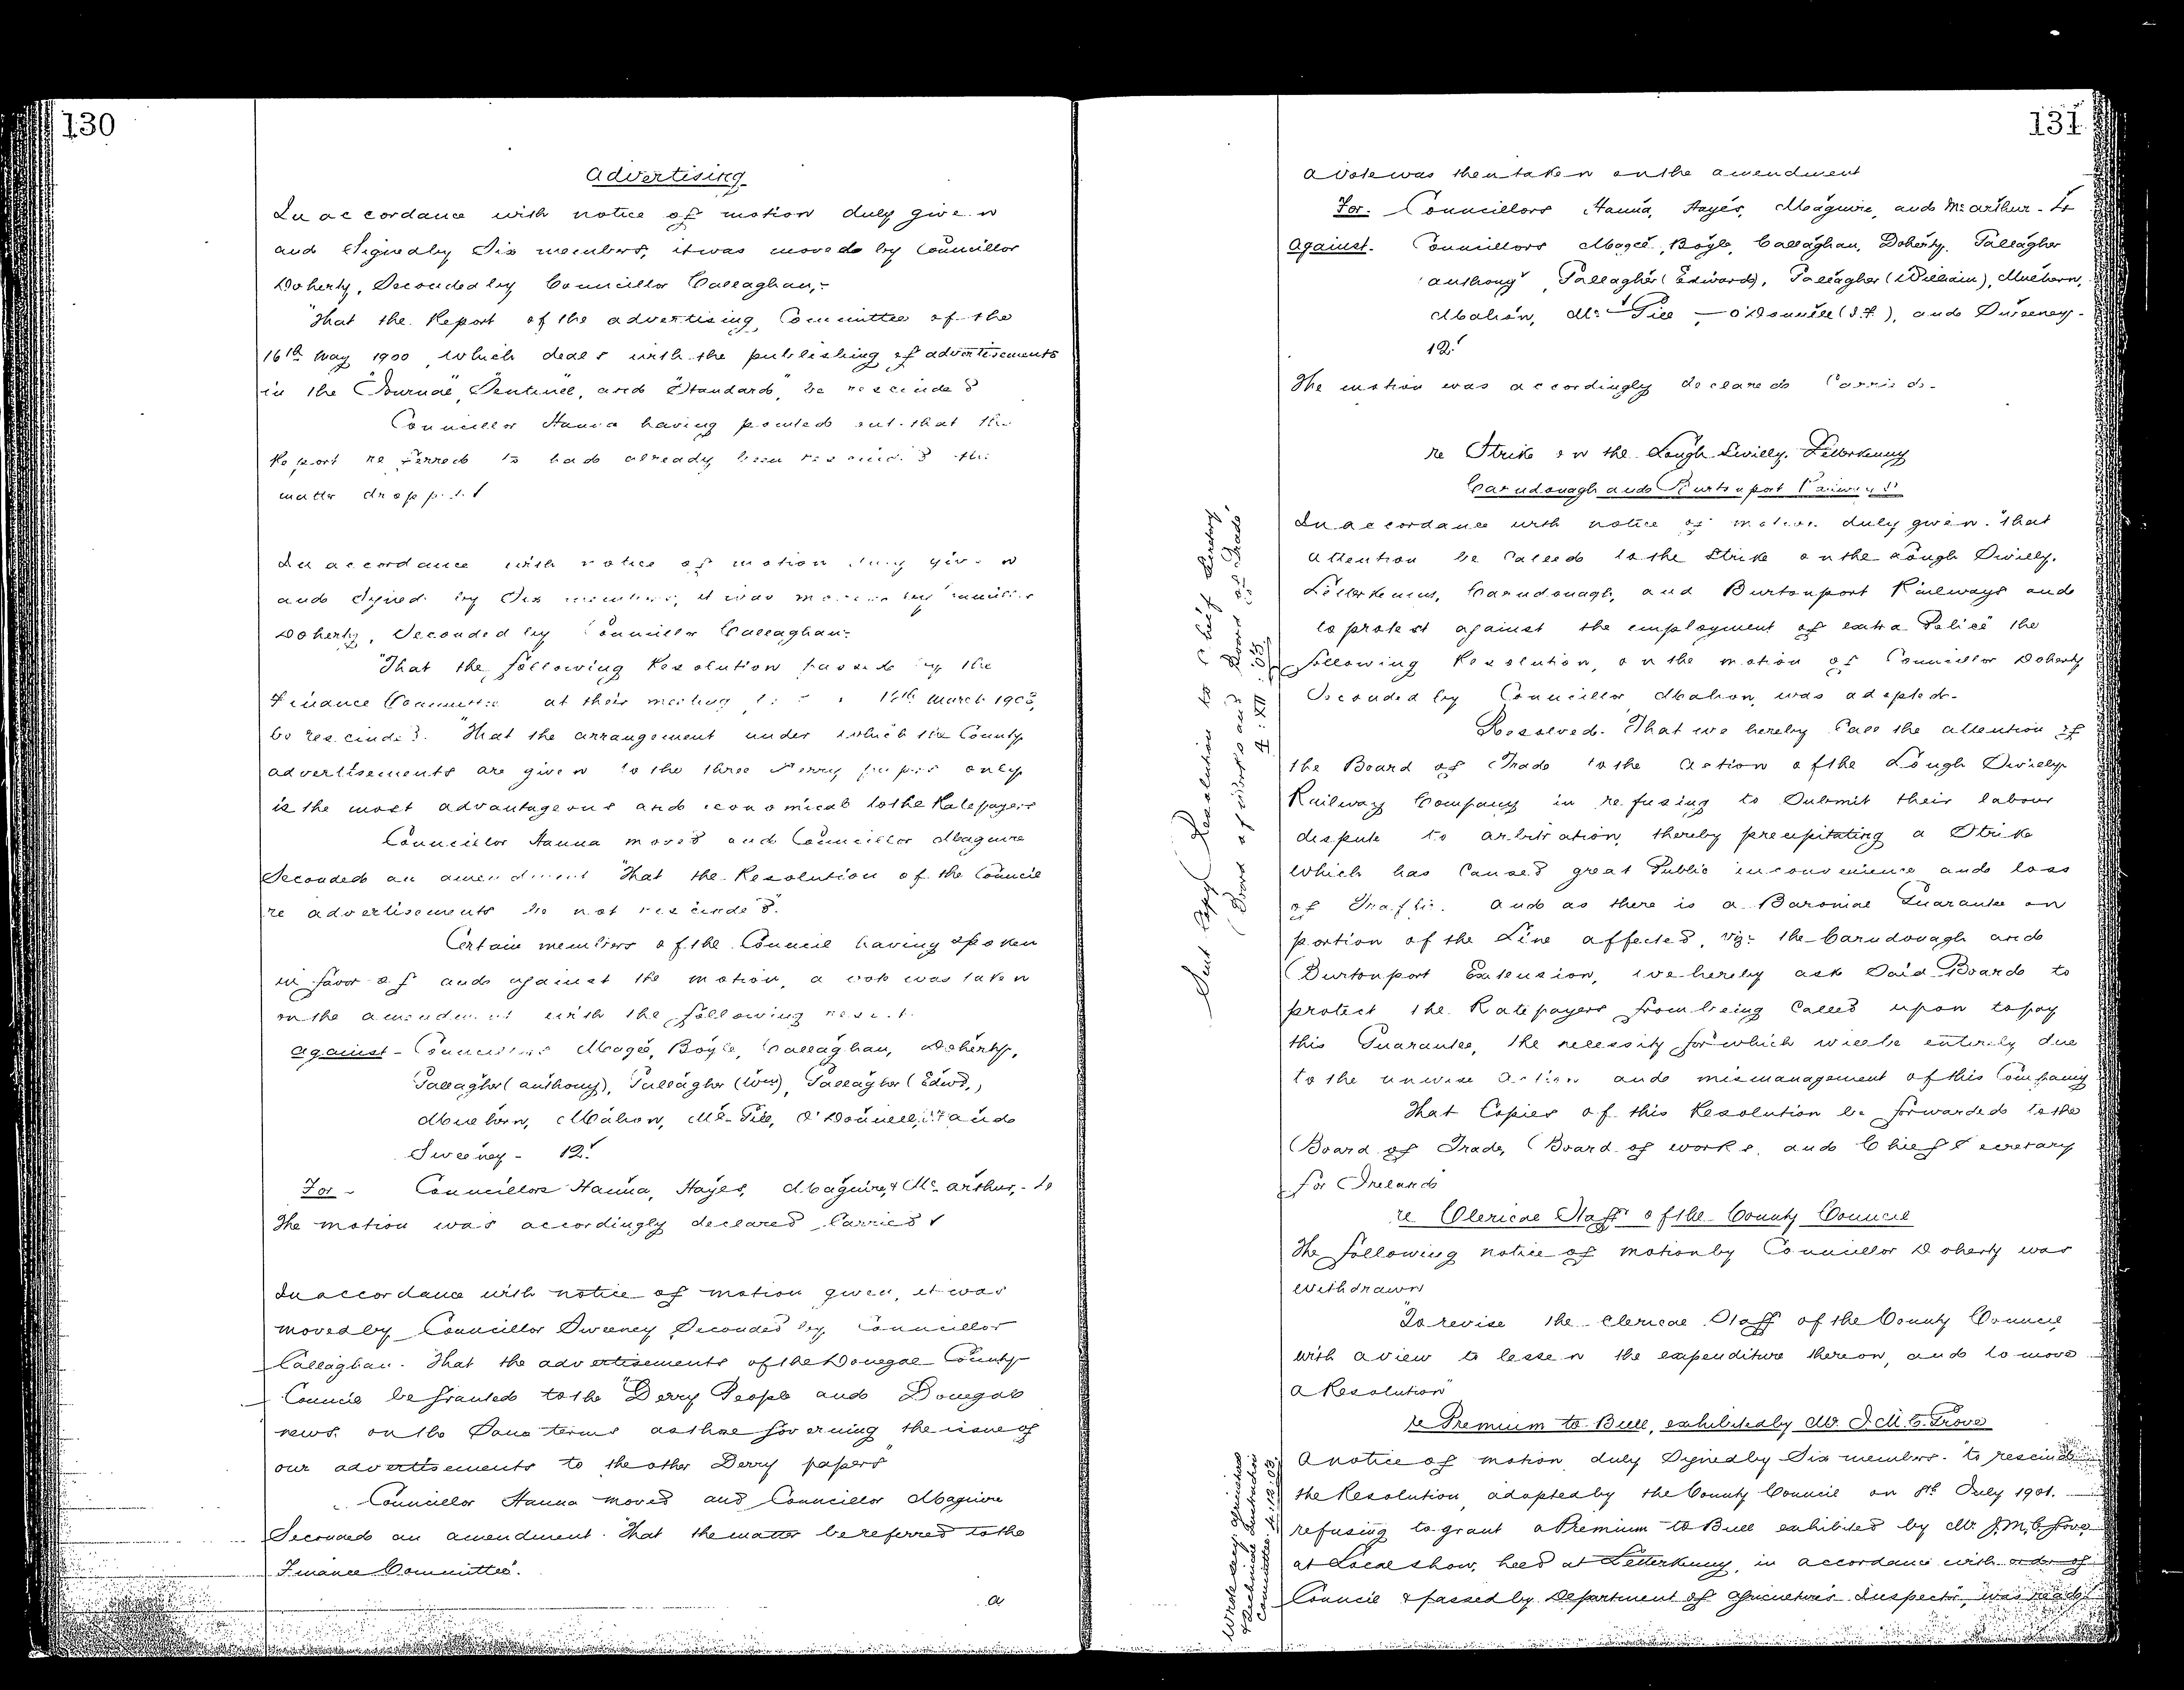 130
Advertising
In accordance with notice of motion duly given
and signed by Six members, it was moved by Councillor
Doherty, Seconded by Councillor Callaghan,-
"That the Report of the advertising Committee of the
16th May 1900, which deals with the publishing of advertisements
in the "Journal", Sentinel, and "Standard", be rescinded
Councillor Hanna having pointed out that the
Report referred to had already been rescinded the
matter dropped.
In accordance with notice of motion duly given
and signed by Six members, it was moved by Councillor
Doherty, Seconded by Councillor Callaghan-
"That the following Resolution passed by the
Finance Committee at their meeting March 1903,
be rescinded. "That the arrangement under which the County
advertisements are given to the three Derry papers only
is the most advantageous and economical to the Ratepayers
Councillor Hanna moved and Councillor Maguire
Seconded an amendment "That the Resolution of the Council
re advertisements be not rescinded".
Certain members of the Council having spoken
in favor of and against the motion, a vote was taken
on the amendment with the following result.
Against - Councillors Magee, Boyle, Callaghan, Doherty,
Gallagher (Anthony), Gallagher (Wm), Gallagher (Edwd.,)
Mulhern, Mahon, Mc Gill, O'Donnell, and
Sweeney - 12.
For - Councillors Hanna, Hayes, Maguire, & Mc Arthur, - 4
The motion was accordingly declared Carried
In accordance with notice of motion given, it was
moved by Councillor Sweeney Seconded by Councillor
Callaghan. That the advertisements of the Donegal County
Council be granted to the "Derry People and Donegal
news on the Same terms as those governing the issue of
our advertisements to the other Derry papers"
Councillor Hanna moved and Councillor Maguire
Seconded an amendment. "That the matter be referred to the
Finance Committee".
a
131
A vote was then taken on the amendment
For. Councillors Hanna, Hayes, Maguire, and Mc Arthur - 4
Against. Councillors Magee, Boyle, Callaghan, Doherty, Gallagher
Anthony, Gallagher (Edward), Gallagher (William), Mulhern,
Mahon, Mc Gill, - O'Donnell, and Sweeney -
12.
The motion was accordingly declared Carried.
re Strike on the Lough Swilly, Letterkenny
Carndonagh and Burtonport Railways
In accordance with notice of motion duly given. "That
attention be Called to the Strike on the Lough Swilly,
Letterkenny, Carndonagh, and Burtonport Railways and
to protest against the employment of extra Police" the
following Resolution, on the motion of Councillor Doherty
Seconded by Councillor Mahon, was adopted.
Resolved. "That we hereby Call the attention of
the Board of Trade to the Action of the Lough Swilly
Railway Company in refusing to Submit their labour
dispute to arbitration, thereby precipitating a Strike
which has Caused great Public inconvenience and loss
of Traffic. And as there is a Baronial Guarantee on
portion of the Line affected, viz: the Carndonagh and
Burtonport Extension, we hereby ask Said Board to
protect the Ratepayers from being Called upon to pay
this Guarantee, the necessity for which will be entirely due
to the unwise Action and mismanagement of this Company
That Copies of this Resolution be forwarded to the
Board of Trade, Board of works, and Chief Secretary
for Ireland
Sent Copy Resolution to Chief Secretary,
Board of Works and Board of Trade
4:XII:03
re Clerical Staff of the County Council
The following notice of motion by Councillor Doherty was
withdrawn
"To revise the Clerical Staff of the County Council
with a view to lessen the expenditure thereon, and to move
a Resolution"
re Premium to Bull, exhibited by Mr. J.M.C. Grove
A notice of motion, duly Signed by Six members. "to rescind
the Resolution adopted by the County Council on 8th July 1901.
refusing to grant a Premium to Bull exhibited by Mr. J.M.C. Grove
at Local show, held at Letterkenny, in accordance with order of
Council & passed by Department of Agriculture's Inspector, was read
Wrote Secy Agricultural
& Technical Instruction
Committee 4:12:03